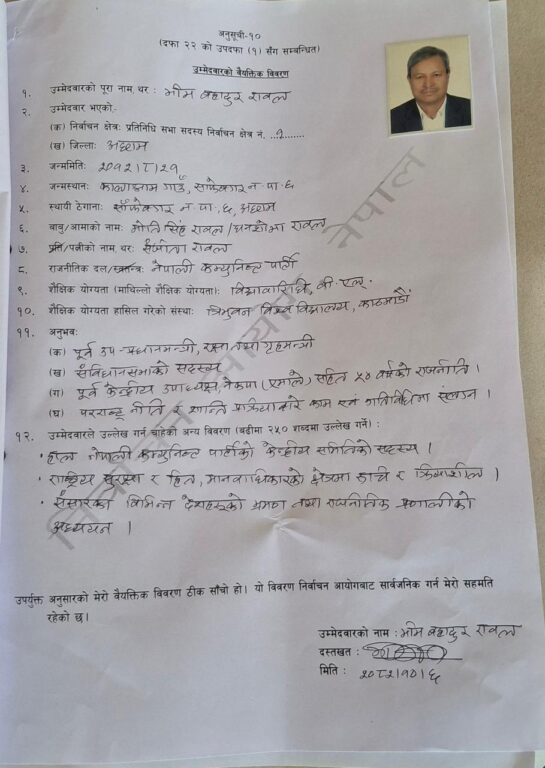 अनुसूची-१०
(दफा २२ को उपदफा (१) सँग सम्बन्धित)
उम्मेदवारको वैयक्तिक विवरण
१. उम्मेदवारको पूरा नाम, थर : भीम बहादुर रावल
२. उम्मेदवार भएको:-
(क) निर्वाचन क्षेत्र: प्रतिनिधि सभा सदस्य निर्वाचन क्षेत्र नं. ..१.......
(ख) जिल्ला: अछाम
३. जन्ममिति: २०१२।८।२१
४. जन्मस्थान: गाउँ, साँफेबगर न.पा.-६
५. स्थायी ठेगाना: साँफेबगर न.पा.,६, अछाम
६. बाबु/आमाको नाम: मोति सिंह रावल / धनकोमा रावल
७. पति/पत्नीको नाम, थर: रावल
८. राजनीतिक दल/स्वतन्त्र: नेपाली कम्युनिष्ट पार्टी
९. शैक्षिक योग्यता (माथिल्लो शैक्षिक योग्यता): विद्यावारिधि, बी.एल.
१०. शैक्षिक योग्यता हासिल गरेको संस्था: त्रिभुवन विश्व विद्यालय, काठमाडौं
११. अनुभव:
(क) पूर्व उप-प्रधानमन्त्री, रक्षा तथा गृहमन्त्री
(ख) संविधानसभाको सदस्य
(ग) पूर्व केन्द्रीय उपाध्यक्ष, नेकपा (एमाले) सहित ५४ वर्षको राजनीति ।
(घ) परराष्ट्र नीति र शान्ति प्रक्रियाबारे काम एवं गतिविधिमा संलग्न ।
१२. उम्मेदवारले उल्लेख गर्न चाहेको अन्य विवरण (बढीमा २५० शब्दमा उल्लेख गर्ने) :
· हाल नेपाली कम्युनिष्ट पार्टीको केन्द्रीय समितिको सदस्य ।
· राष्ट्रिय सुरक्षा र हित, मानवाधिकारको क्षेत्रमा रुचि र क्रियाशील ।
· संसारका विभिन्न देशहरूको भ्रमण तथा राजनीतिक प्रणालीको
अध्ययन ।
उपर्युक्त अनुसारको मेरो वैयक्तिक विवरण ठीक साँचो हो। यो विवरण निर्वाचन आयोगबाट सार्वजनिक गर्न मेरो सहमति
रहेको छ।
उम्मेदवारको नाम : भीम बहादुर रावल
दस्तखत :
मिति : २०८२।१०।६
निर्वाचन आयोग नेपाल